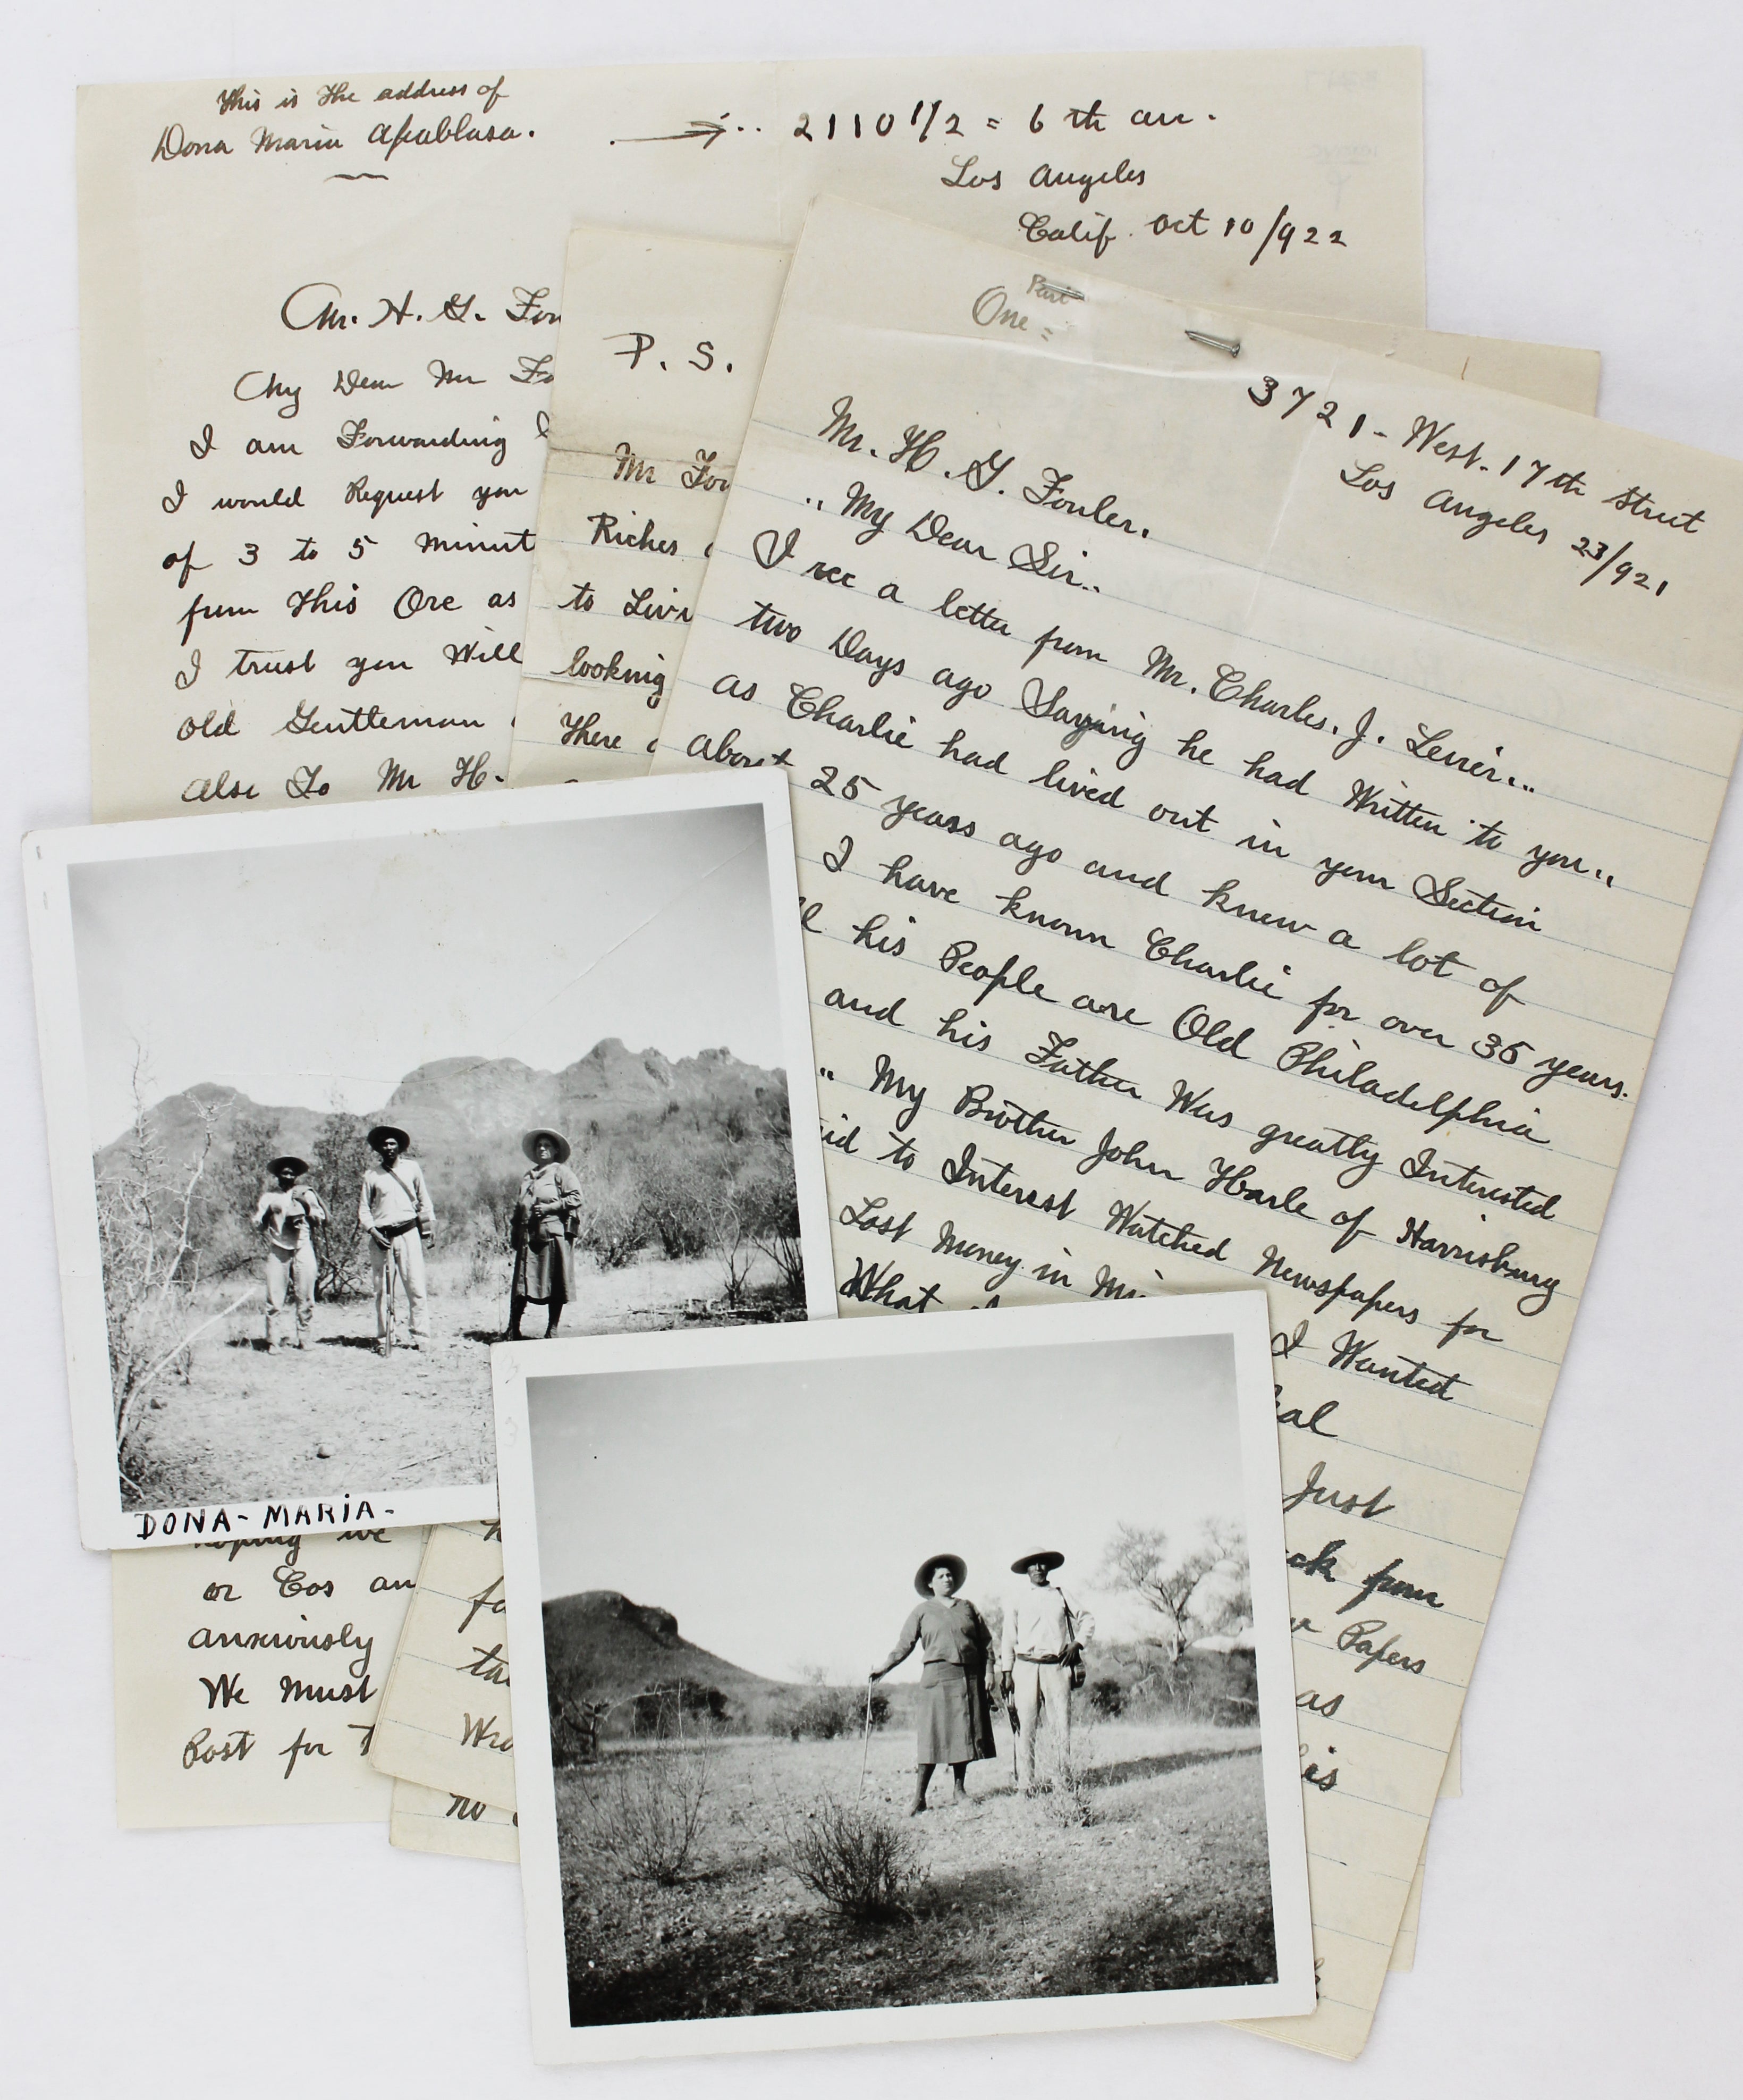 This is the address of
Dona Maria Apablasa.
2110 1/2 = 6 th av.
Los Angeles
Calif. Oct 10/922
Mr. H. G. Fow
My Dear Mr Fo
I am Forwarding
I would Request you
of 3 to 5 minut
from This Ore as
I trust you Will
Old Gentleman
Also To Mr H.
hoping we
or Cos an
anxiously
We Must
Post for T
P. S.
Mr Fow
Riches
to Livi
looking
There
fo
ta
Wro
no
Part
One =
3721 - West. 17th Street
Los Angeles 23/921
Mr. H. G. Fowler.
My Dear Sir..
I rec a letter from Mr. Charles. J.
two Days ago Saying he had Written to you..
as Charlie had lived out in your Section
About 25 years ago and knew a lot of
I have known Charlie for over 35 years.
his People are Old Philadelphia
and his Father Was greatly Interested
" My Brother John Harle of Harrisburg
id to Interest Watched Newspapers for
Lost Money in Mi
What I Wanted
al
Just
ck from
Papers
as
is
DONA - MARIA -